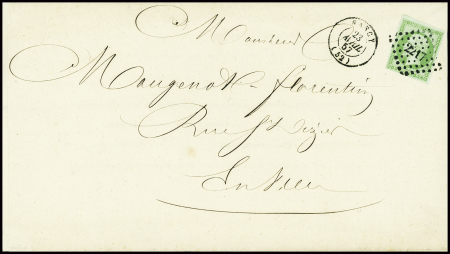 Monsieur
Mougenot-florentin
Rue St Dizier
En Ville
NANCY
23
AVRIL
(52)
2217